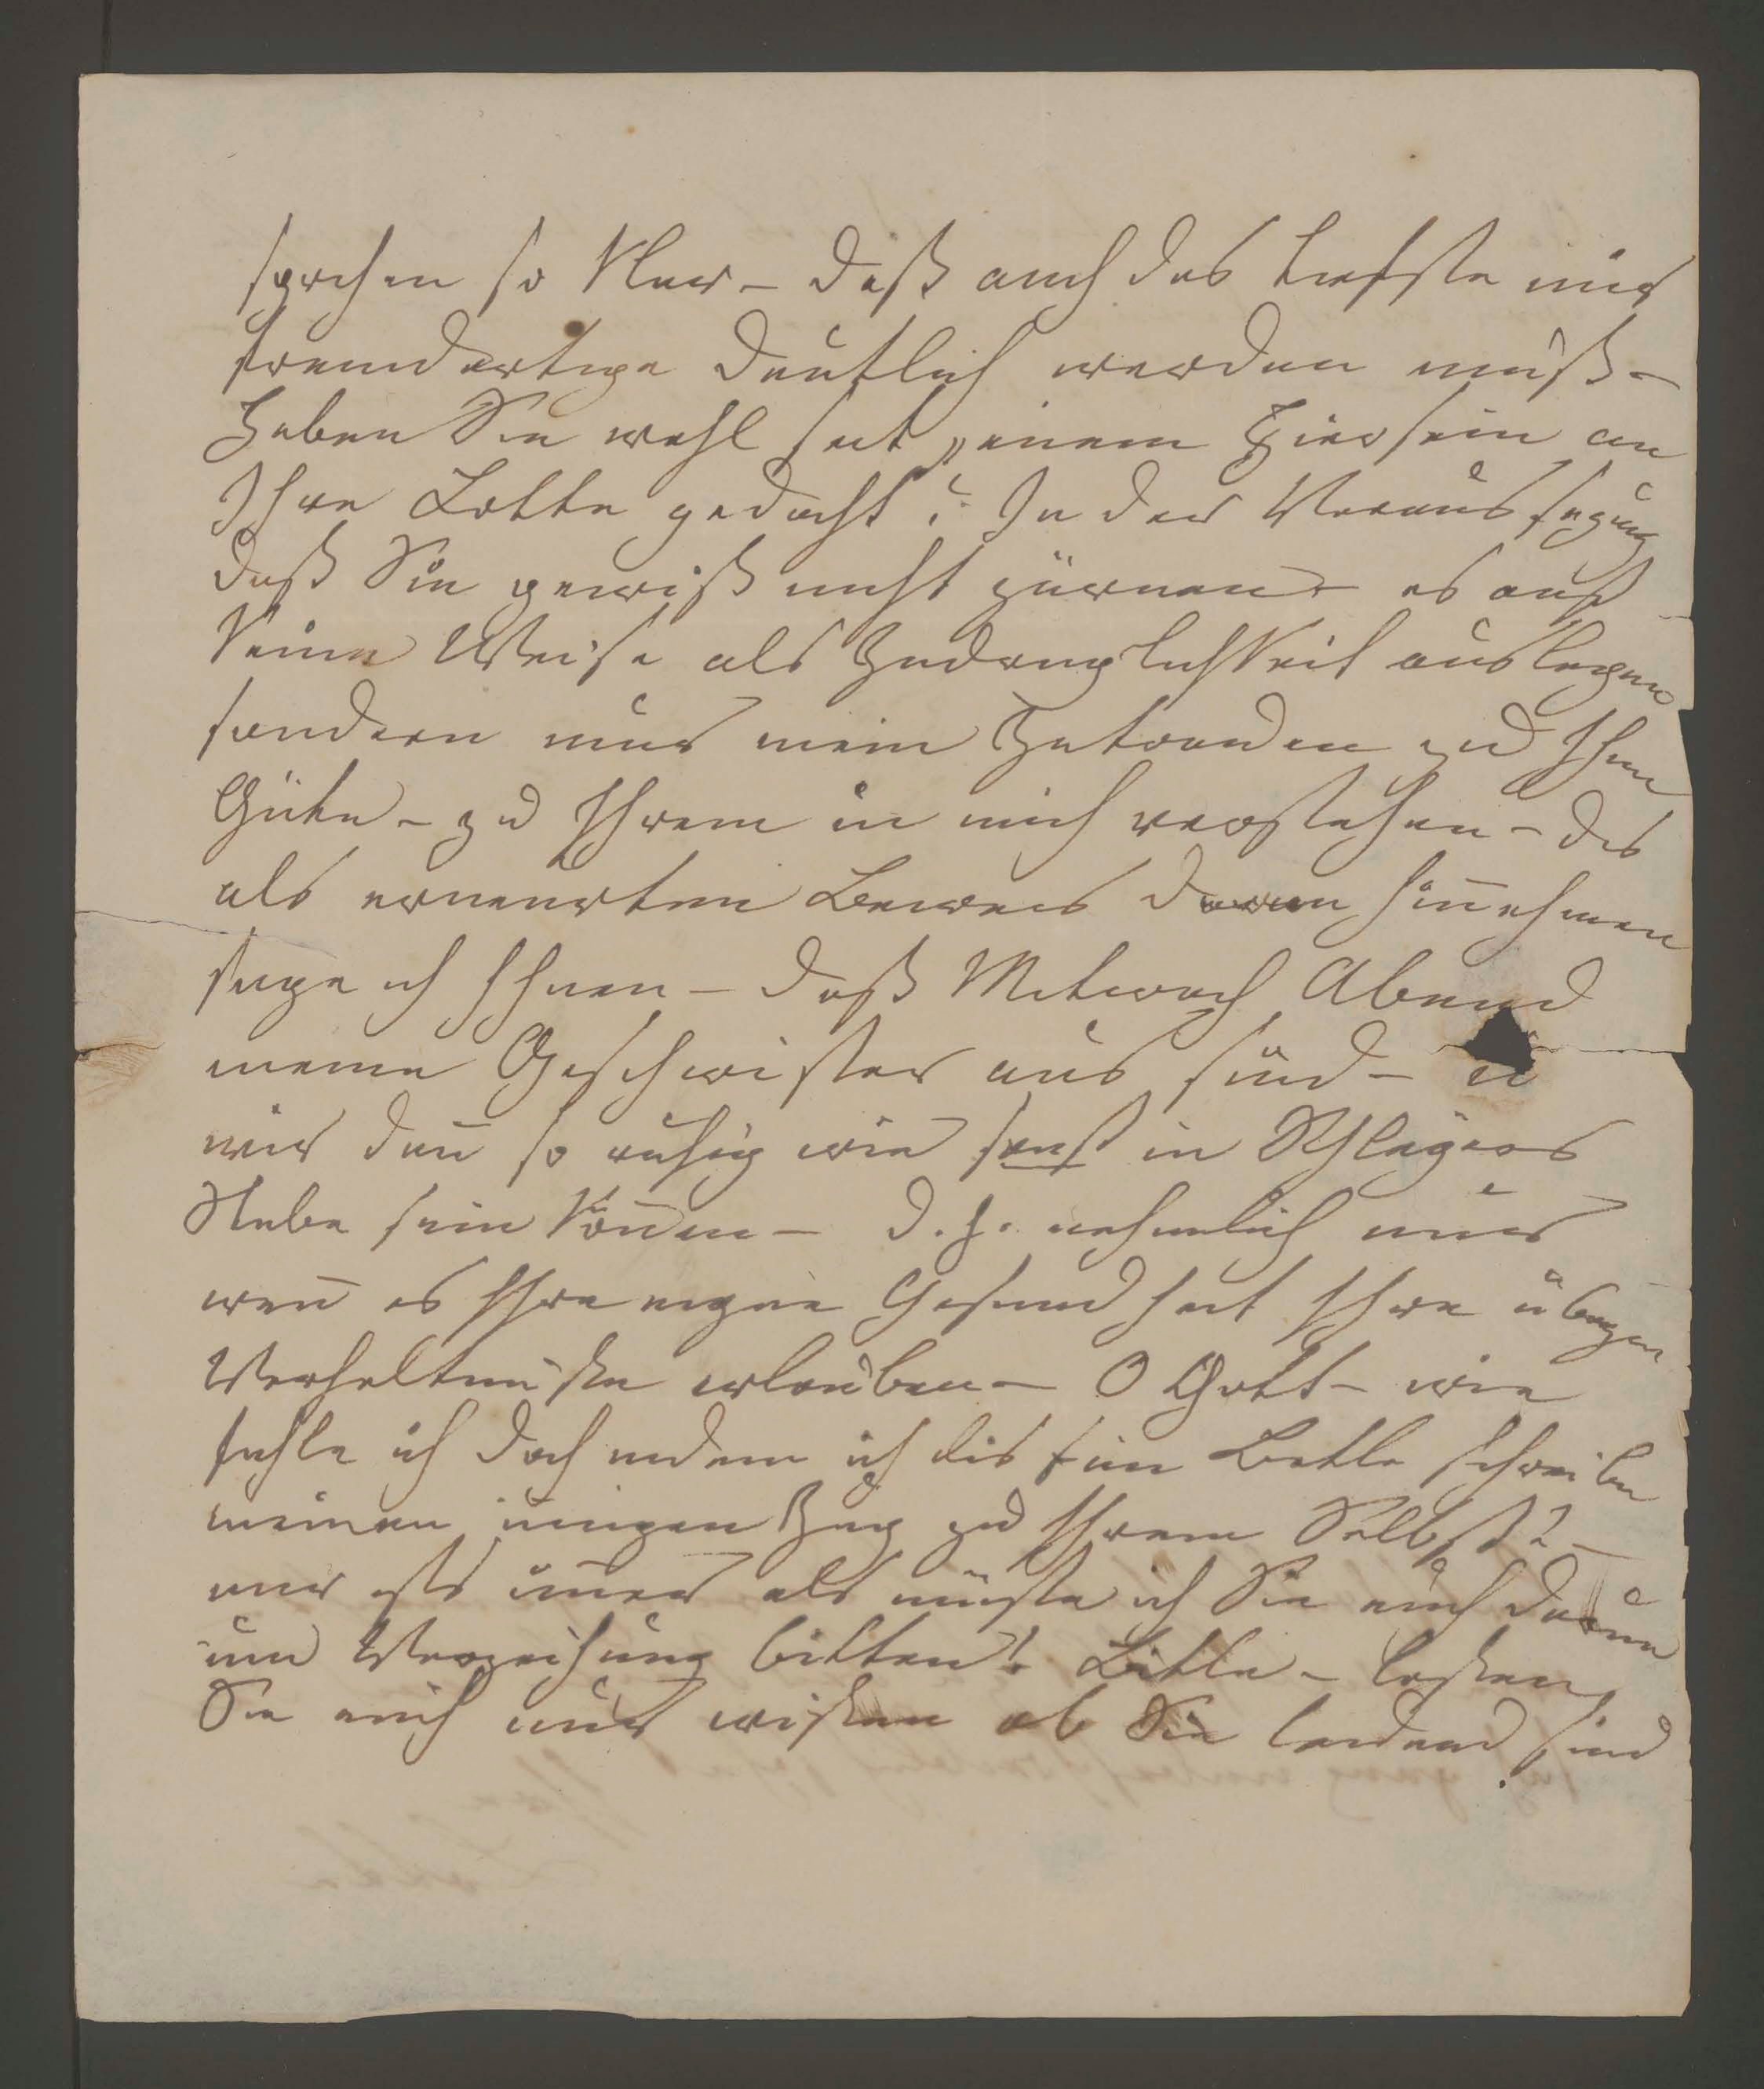 sprchen so klar – daß auch das tiefste mir
fremdartige deutlich werden muß –
Haben Sie wohl seit „einem Hiersein an
Ihre Lotte gedacht? In der Voraussezung
daß Sie gewiß nicht zürnen – es auf
keine Weise als Zudranglichkeit auslegen
sondern nur mein Zutrauen zu Ihrer
Güte – zu Ihrem in mich verstehen – das
als erneuerten Beweis davon hinnehmen
sage ich Ihnen – daß Mitwoch Abend
meine Geschwister aus sind – u
wir dann so ruhig wie sonst in
Stube sein können – d. h. nehmlich nur
wenn es Ihre eigene Gesundheit Ihre übrigen
Verhaltniße erlauben – O Gott – wie
fühle ich doch indem ich dis
Bitte schreibe
meinen innigen Zug zu Ihrem Selbst! –
mir ists immer als müßte ich Sie auch darum
um Verzeihung bitten! Bitte – laßen
Sie mich nur wißen ob Sie leidend sind